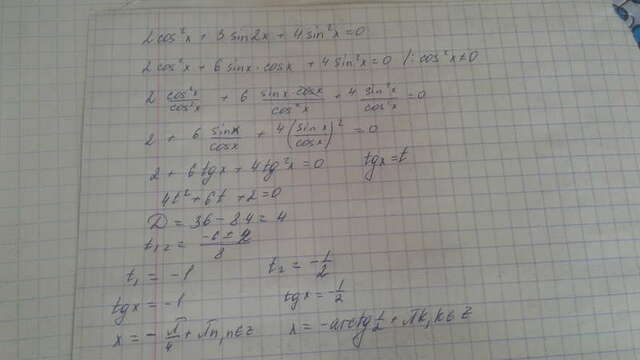 2cos²x + 3 sin2x + 4sin²x = 0
2cos²x + 6 sinx·cosx + 4sin²x = 0 / : cos²x ≠ 0
2 cos²x/cos²x + 6 sinx·cosx/cos²x + 4 sin²x/cos²x = 0
2 + 6 sinx/cosx + 4(sinx/cosx)² = 0
2 + 6tgx + 4tg²x = 0 tgx = t
4t² + 6t + 2 = 0
D = 36 - 84 = 4
t₁,₂ = -6 ± 2/8
t₁ = -1 t₂ = -1/2
tgx = -1 tgx = -1/2
x = -π/4 + πn, n∈Z x = -arctg 1/2 + πk, k∈Z